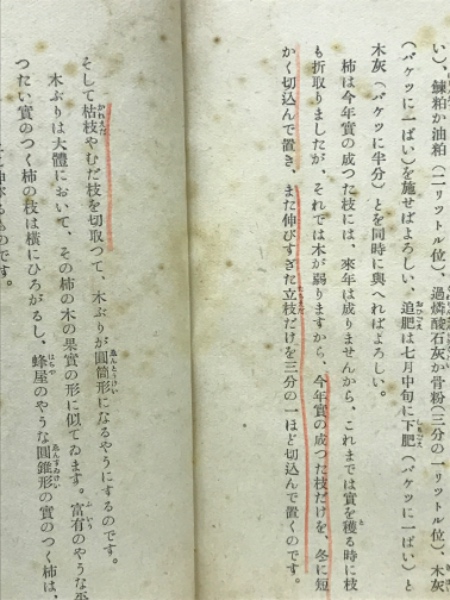 い)、鰊粕か油粕(二リツトル位)、過燐酸石灰か骨粉(三分の一リツトル位)、木灰
(バケツに一ぱい)を施せばよろしい、追肥は七月中旬に下肥(バケツに一ぱい)と
木灰(バケツに半分)とを同時に與へればよろしい。
柿は今年實の成つた枝には、來年は成りませんから、これまでは實を穫る時に枝
も折取りましたが、それでは木が弱りますから、今年實の成つた枝だけを、冬に短
かく切込んで置き、また伸びすぎた立枝だけを三分の一ほど切込んで置くのです。
そして枯枝やむだ枝を切取つて、木ぶりが圓筒形になるやうにするのです。
木ぶりは大體において、その柿の木の果實の形に似てゐます。富有のやうな平
つたい實のつく柿の枝は橫にひろがるし、蜂屋のやうな圓錐形の實のつく柿は、
ものです。